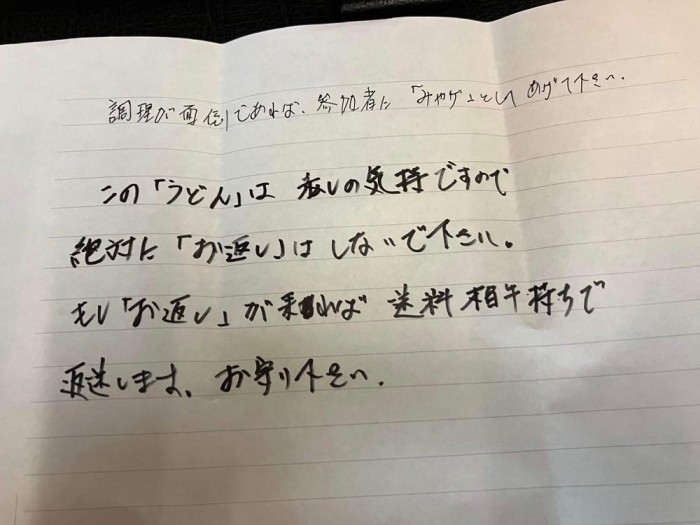 調理が面倒であれば、参加者に「みやげ」として あげて下さい.
この「うどん」は 私しの気持ですので
絶対に「お返し」は しないで下さい。
もし「お返し」が来れば 送料相手持ちで
返送します、お守り下さい.